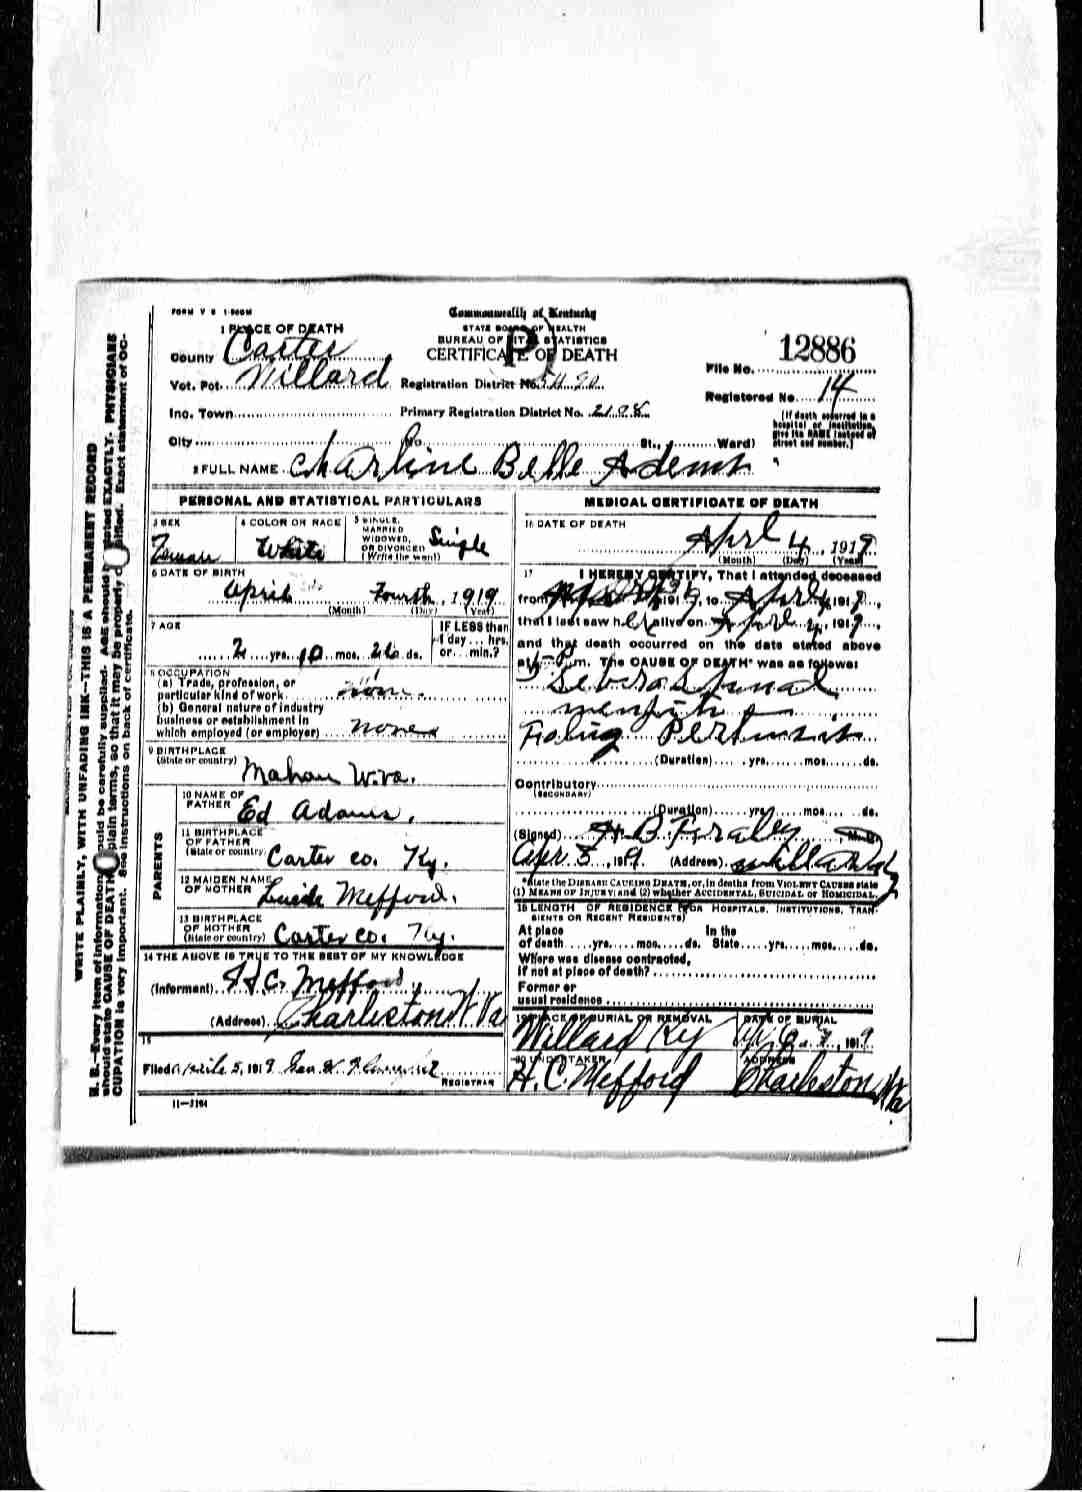 FORM V S 1-500M
Commonwealth of Kentucky
1 PLACE OF DEATH
STATE BOARD OF HEALTH
BUREAU OF VITAL STATISTICS
CERTIFICATE OF DEATH
County Carter
12886
File No.
Vot. Pct. Willard Registration District No.
Registered No. 14
Inc. Town Primary Registration District No. 2198
(If death occurred in a hospital or institution, give its NAME instead of street and number.)
City No. St., Ward)
2 FULL NAME Charline Belle Adems
PERSONAL AND STATISTICAL PARTICULARS
3 SEX
4 COLOR OR RACE White
5 SINGLE, MARRIED WIDOWED, OR DIVORCED (Write the word) Single
6 DATE OF BIRTH
April Fourth, 1919
(Month) (Day) (Year)
7 AGE
2 yrs. 10 mos. 26 ds.
IF LESS than 1 day ... hrs. or ... min.?
8 OCCUPATION
(a) Trade, profession, or
particular kind of work none
(b) General nature of industry
business or establishment in
which employed (or employer) none
9 BIRTHPLACE
(State or country) Mahan W.Va.
PARENTS
10 NAME OF FATHER Ed Adams.
11 BIRTHPLACE OF FATHER (State or country) Carter co. Ky.
12 MAIDEN NAME OF MOTHER Mefford.
13 BIRTHPLACE OF MOTHER (State or country) Carter co. Ky.
14 THE ABOVE IS TRUE TO THE BEST OF MY KNOWLEDGE
(Informant) H.C. Mefford
(Address) Charleston W Va
15
Filed 5, 1919
REGISTRAR
11-3184
MEDICAL CERTIFICATE OF DEATH
16 DATE OF DEATH
Aprl 4, 1919
(Month) (Day) (Year)
17 I HEREBY CERTIFY, That I attended deceased
from 1919, to Aprl 4, 1919,
that I last saw her alive on Aprl 4, 1919,
and that death occurred on the date stated above
at m. The CAUSE OF DEATH* was as follows:
(Duration) yrs. mos. ds.
Contributory
(SECONDARY)
(Duration) yrs. mos. ds.
(Signed) H B
Apr 5, 1919. (Address) Willard Ky
*State the DISEASE CAUSING DEATH, or, in deaths from VIOLENT CAUSES state
(1) MEANS OF INJURY; and (2) whether ACCIDENTAL, SUICIDAL or HOMICIDAL.
18 LENGTH OF RESIDENCE (FOR HOSPITALS, INSTITUTIONS, TRAN-
SIENTS OR RECENT RESIDENTS)
At place of death yrs. mos. ds. In the State yrs. mos. ds.
Where was disease contracted,
if not at place of death?
Former or
usual residence
19 PLACE OF BURIAL OR REMOVAL Willard Ky
DATE OF BURIAL 1919
20 UNDERTAKER H.C. Mefford
ADDRESS Charleston W Va
WRITE PLAINLY, WITH UNFADING INK—THIS IS A PERMANENT RECORD
N. B.—Every item of information should be carefully supplied. AGE should be stated EXACTLY. PHYSICIANS
should state CAUSE OF DEATH in plain terms, so that it may be properly classified. Exact statement of OC-
CUPATION is very important. See instructions on back of certificate.